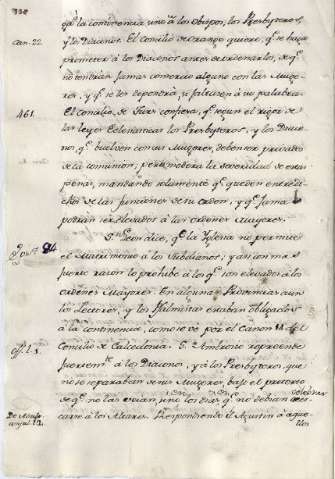 qᵉ la continencia, uno a los obispos, los Presbyteros,
Can. 22. y los Diaconos. El Concilio de Orange quiere, qᵉ se haga
prometer à los Diaconos antes de ordenarlos, qᵉ
no tendràn jamas comercio alguno con las Muge-
res, y qᵉ se les depondrà si faltasen à su palabra.
461. El concilio de Turs confiesa, qᵉ segun el rigor de
las leyes Eclesiasticas los Presbyteros, y los Diaco-
nos, qᵉ buelven con sus Mugeres, deben ser privados
de la comunion; pero modera la severidad de estas
penas, mandando solamente qᵉ queden entredi-
chos de las funciones de su orden, y qᵉ jamas
podran ser elevados à las ordenes Mayores.
Sⁿ Leon dice, qᵉ la Iglesia no permite
84. el Matrimonio à los Subdiaconos, y asi con mas
fuerte razon lo prohibe à los qᵉ son elevados à los
ordenes Mayores. En algunas Provincias aun
los Lectores, y los Psalmistas estaban obligados
à la continencia, como se vè por el Canon 14 del
Off. l. 1. Concilio de Calcedonia. S. Ambrosio reprende
fuertemᵗᵉ à los Diaconos, y à los Presbyteros, que
no se separaban de sus Mugeres, bajo el pretexto
de qᵉ no las veian, sino los dias qᵉ no debian
carse à los Altares. Respondiendo S. Agustin à aque-
llos